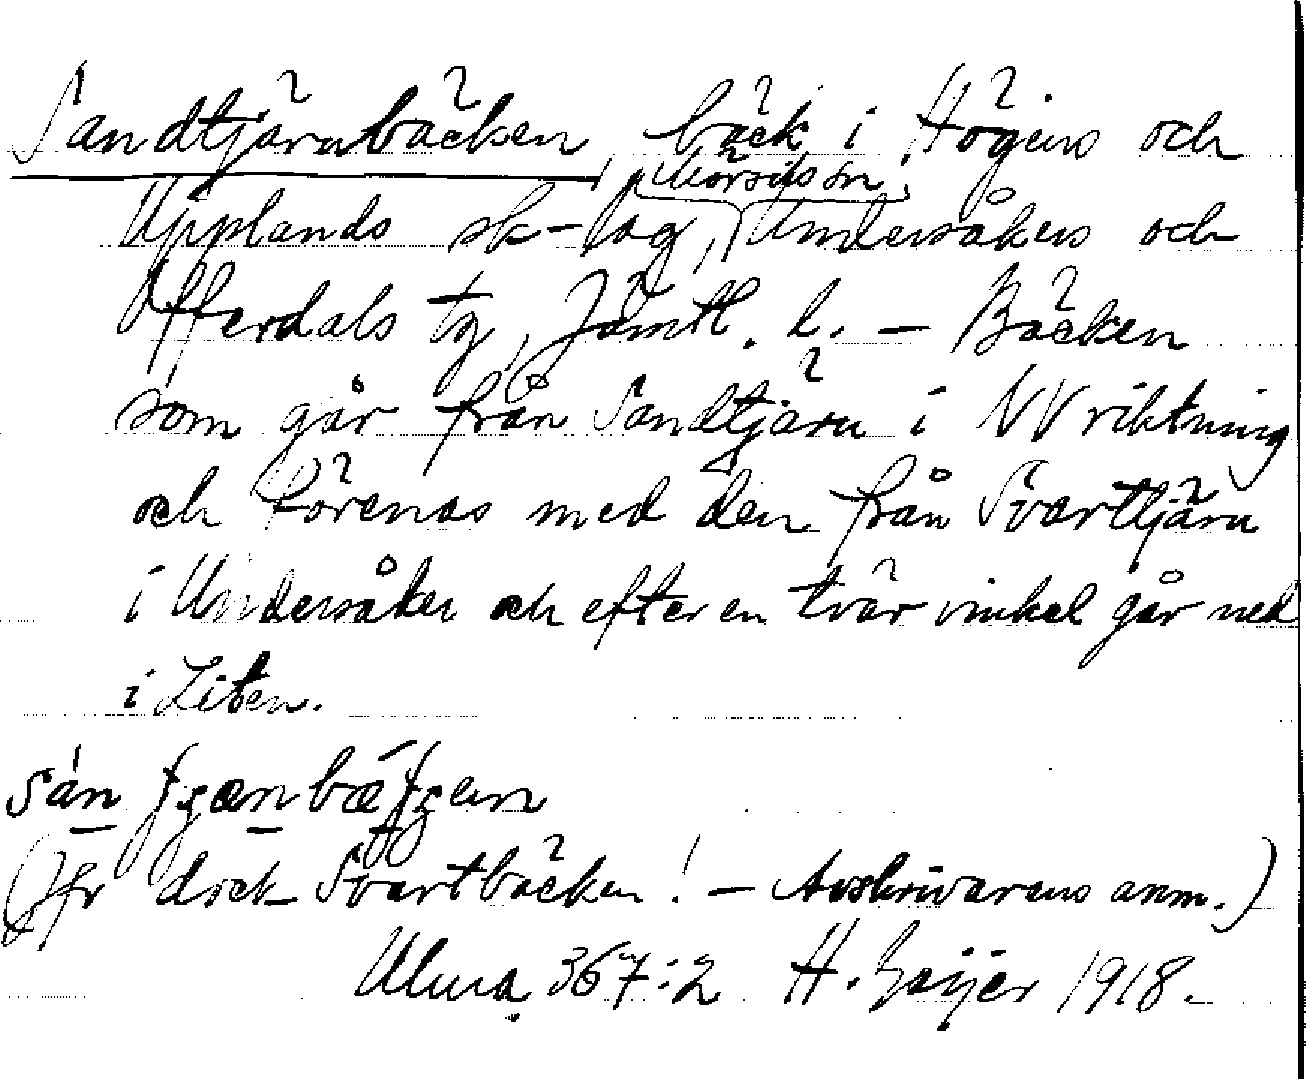 Sandtjärnbäcken, bäck i Högens och
Mörsils sn,
Upplands sk-lag, Undersåkers och
Offerdals tg, Jämtl. l. — Bäcken
som går från Sandtjärn i NV riktning
och förenas med den från Svarttjärn
i Undersåker och efter en tvär vinkel går ned
i Liten.
(Jfr dock Svartbäcken! — Avskrivarens anm.)
Ulma 367:2 H. Geijer 1918.